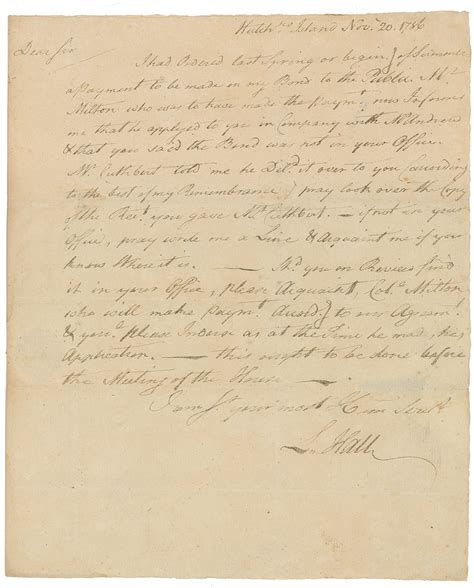 Hutchns Island Novr. 20. 1786
Dear Sir
I had Ordered last Spring or begin.} of Summer
a Payment to be made on my Bond to the Public. Mr.
Milton who was to have made the Paymt. now Informs
me that he applyed to you in Company with Mr
& that you said the Bond was not in your Office.
Mr. Cuthbert told me he Deld. it over to you (according
to the best of my Remembrance) pray look over the Copy
of the Rect. you gave Mr. Cuthbert. — if not in your
Office, pray write me a Line & Acquaint me if you
know Where it is. — Shd. you on Review find
it in your Office, please Acquaint, Colo. Milton
who will make Paymt. Accord.} to our Agreemt.
& you'l please Indorse as at the Time he made his
Application. — this ought to be done before
the Meeting of the House —
I am Sr. your most H Servt.
Ln. Hall